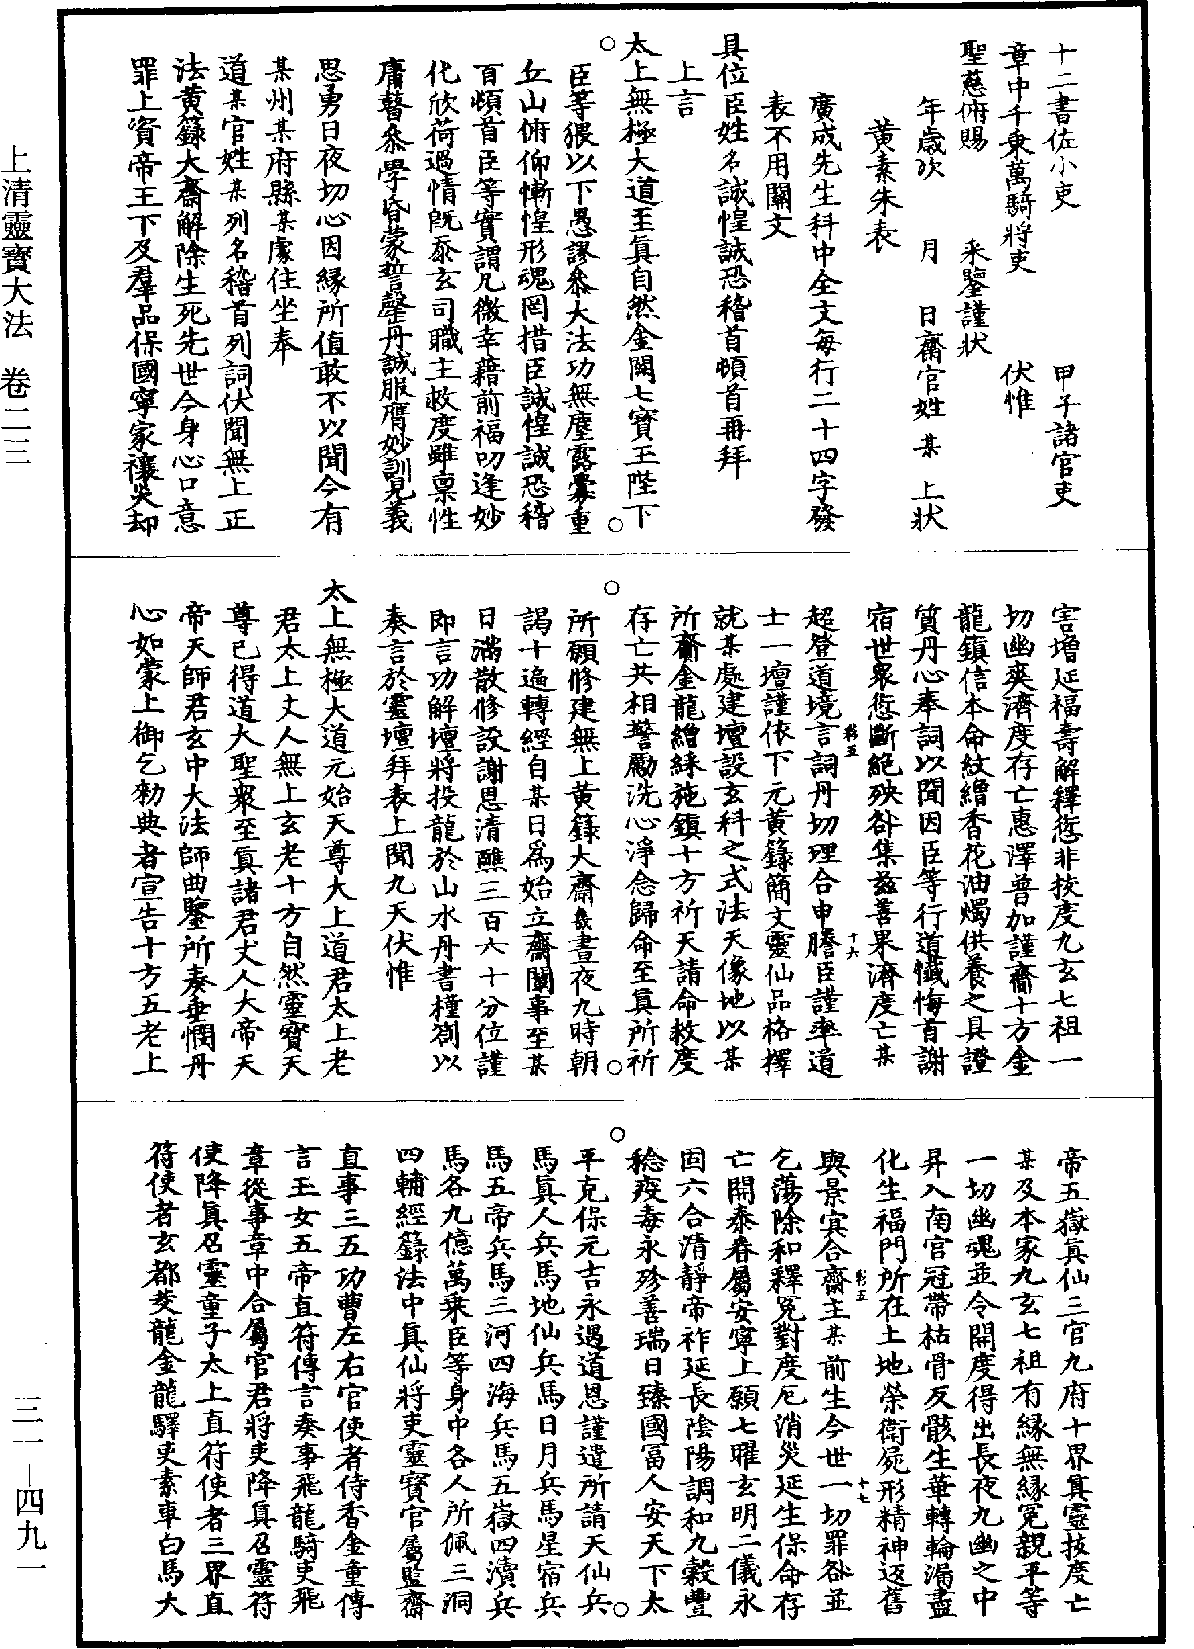 上清靈寶大法　卷二三
十二書佐小吏　　　甲子諸官吏
章中千乘萬騎將吏　　伏惟
聖慈俯賜　　采鑒謹狀
年歲次　　月　　日齋官姓　某　上狀
黃素朱表
廣成先生科中全文每行二十四字發
表不用關文
具位臣姓名誠惶誠恐稽首頓首再拜
上言
太上無極大道至眞自然金闕七寶玉陛下
臣等猥以下愚謬叅大法功無塵露釁重
丘山俯仰慚惶形魂罔措臣誠惶誠恐稽
首頓首臣等實謂凡微幸藉前福叨逢妙
化欣荷過情旣忝玄司職主救度雖稟性
庸瞽叅學昏蒙誓罄丹誠服膺妙訓見義
思勇日夜切心因緣所值敢不以聞今有
某州某府縣某處住坐奉
道某官姓某列名稽首列詞伏聞無上正
法黃籙大齋解除生死先世今身心口意
罪上資帝王下及羣品保國寧家禳災却
害增延福壽解釋愆非拔度九玄七祖一
切幽爽濟度存亡惠澤普加謹齎十方金
龍鎮信本命紋繒香花油燭供養之具證
質丹心奉詞以聞因臣等行道懺悔首謝
宿世衆愆斷絕殃咎集茲善果濟度亡某
超登道境言詞丹切理合申謄臣謹率道
士一壇謹依下元黃籙簡文靈仙品格擇
就某處建壇設玄科之式法天像地以某
所齎金龍繒綵施鎮十方祈天請命救度
存亡共相警勵洗心淨念歸命至眞所祈
所願修建無上黃籙大齋幾晝夜九時朝
謁十遍轉經自某日爲始立齋關事至某
日滿散修設謝恩清醮三百六十分位謹
卽言功解壇將投龍於山水丹書橦劄以
奏言於靈壇拜表上聞九天伏惟
太上無極大道元始天尊大上道君太上老
君太上丈人無上玄老十方自然靈寶天
尊已得道大聖衆至眞諸君丈人大帝天
帝天師君玄中大法師曲鑒所奏垂憫丹
心如蒙上御乞勅典者宣告十方五老上
帝五嶽眞仙三官九府十界眞靈拔度亡
某及本家九玄七祖有緣無緣冤親平等
一切幽魂並令開度得出長夜九幽之中
昇入南宮冠帶枯骨反骸生華轉輪漏盡
化生福門所在土地榮衛屍形精神返舊
與景寅合齋主某前生今世一切罪咎並
乞蕩除和釋冤對度厄消災延生保命存
亡開泰眷屬安寧上願七曜玄明二儀永
固六合清靜帝祚延長陰陽調和九穀豐
稔疫毒永殄善瑞日臻國富人安天下太
平克保元吉永遇道恩謹遣所請天仙兵
馬眞人兵馬地仙兵馬日月兵馬星宿兵
馬五帝兵馬三河四海兵馬五嶽四瀆兵
馬各九億萬乘臣等身中各人所佩三洞
四輔經籙法中眞仙將吏靈寶官屬監齋
直事三五功曹左右官使者侍香金童傳
言玉女五帝直符傳言奏事飛龍騎吏飛
章從事章中合屬官君將吏降眞召靈符
使降眞召靈童子太上直符使者三界直
符使者玄都茭龍金龍驛吏素車白馬大
彩五
十六
彩五
十七
三一—四九一